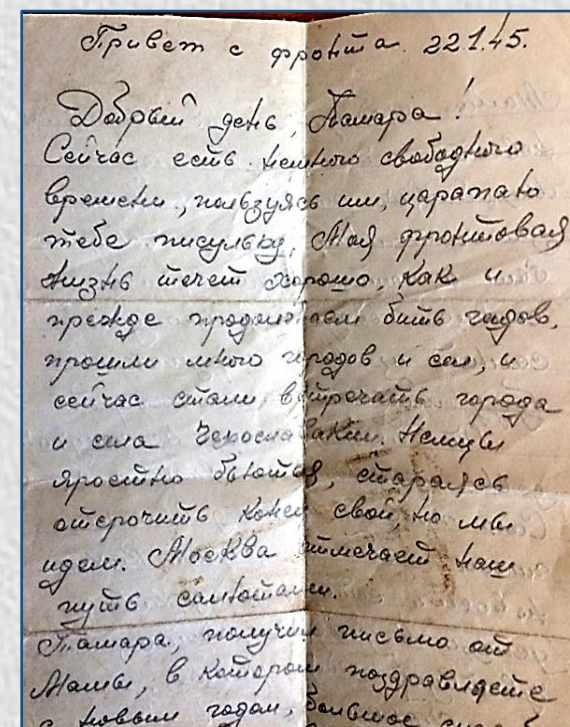 Привет с фронта. 22.1.45.
Добрый день, Тамара!
Сейчас есть немного свободного
времени, пользуясь им, царапаю
тебе писульку. Моя фронтовая
жизнь течет хорошо, как и
прежде продолжаем бить гадов,
прошли много городов и сел, и
сейчас стали встречать города
и села Чехословакии. Немцы
яростно бьются, стараясь
отсрочить конец свой, но мы
идем. Москва отмечает наш
путь салютами.
Тамара, получил письмо от
Мамы, в котором поздравляете
с новым годом, большое